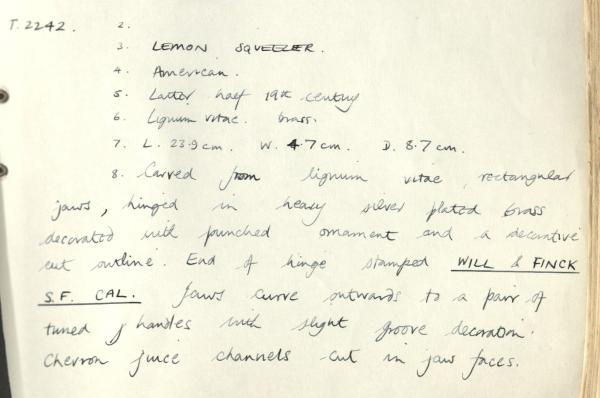 T. 2242.
2.
3. LEMON SQUEEZER.
4. American.
5. Latter half 19th century
6. Lignum vitae. brass.
7. L. 23.9 cm. W. 4.7 cm. D. 8.7 cm.
8. Carved from lignum vitae, rectangular
jaws, hinged in heavy silver plated brass
decorated with punched ornament and a decorative
cut outline. End of hinge stamped WILL & FINCK
S.F. CAL. Jaws curve outwards to a pair of
turned handles with slight groove decoration.
Chevron juice channels cut in jaw faces.